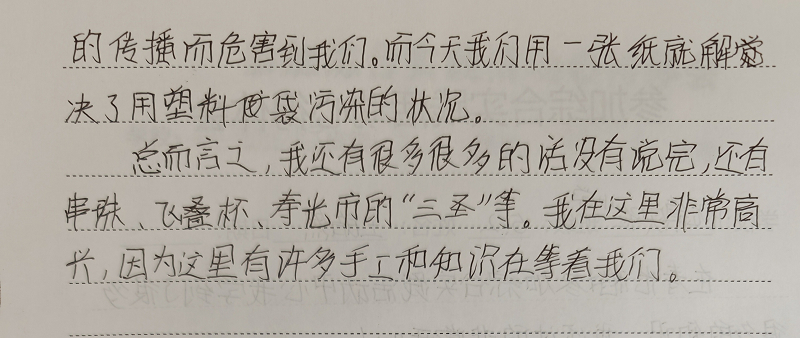 的传播而危害到我们。而今天我们用一张纸就解
决了用塑料袋污染的状况。
总而言之，我还有很多很多的话没有说完，还有
串珠、飞叠杯、寿光市的“三圣”等。我在这里非常高
兴，因为这里有许多手工和知识在等着我们。